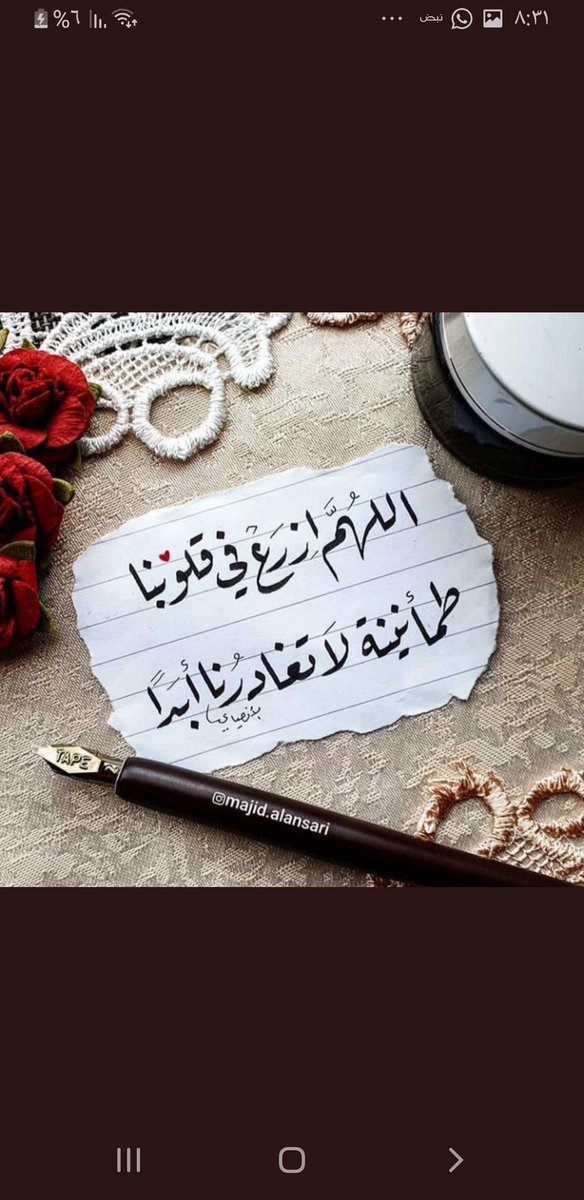 ٨:٣١ نبض ... %٦
اللهُمَّ اِزرَعْ في قلوبنا
طمأنينة لَا تغادرُنا أبَدًا
TAPE
@majid.alansari